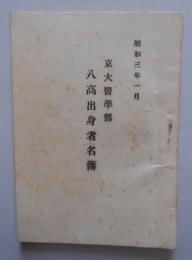 昭和三年一月
京大醫學部
八高出身者名簿